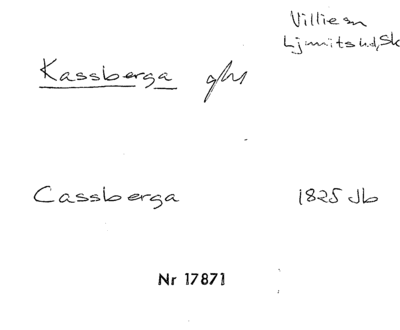 Villie sn
Ljunits hd, Sk
Kassberga ghs
Cassberga 1825 Jb
Nr 17871